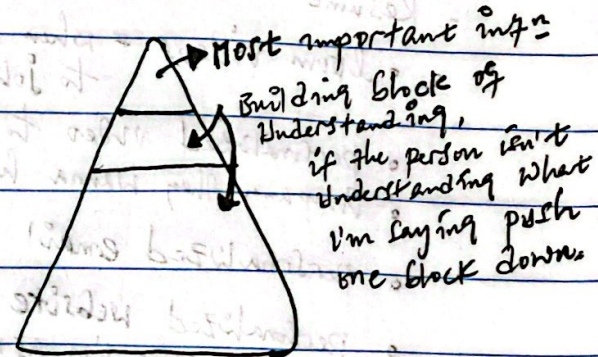 Most important infⁿ
Building block of
understanding,
if the person isn't
understanding what
i'm saying push
one block down.